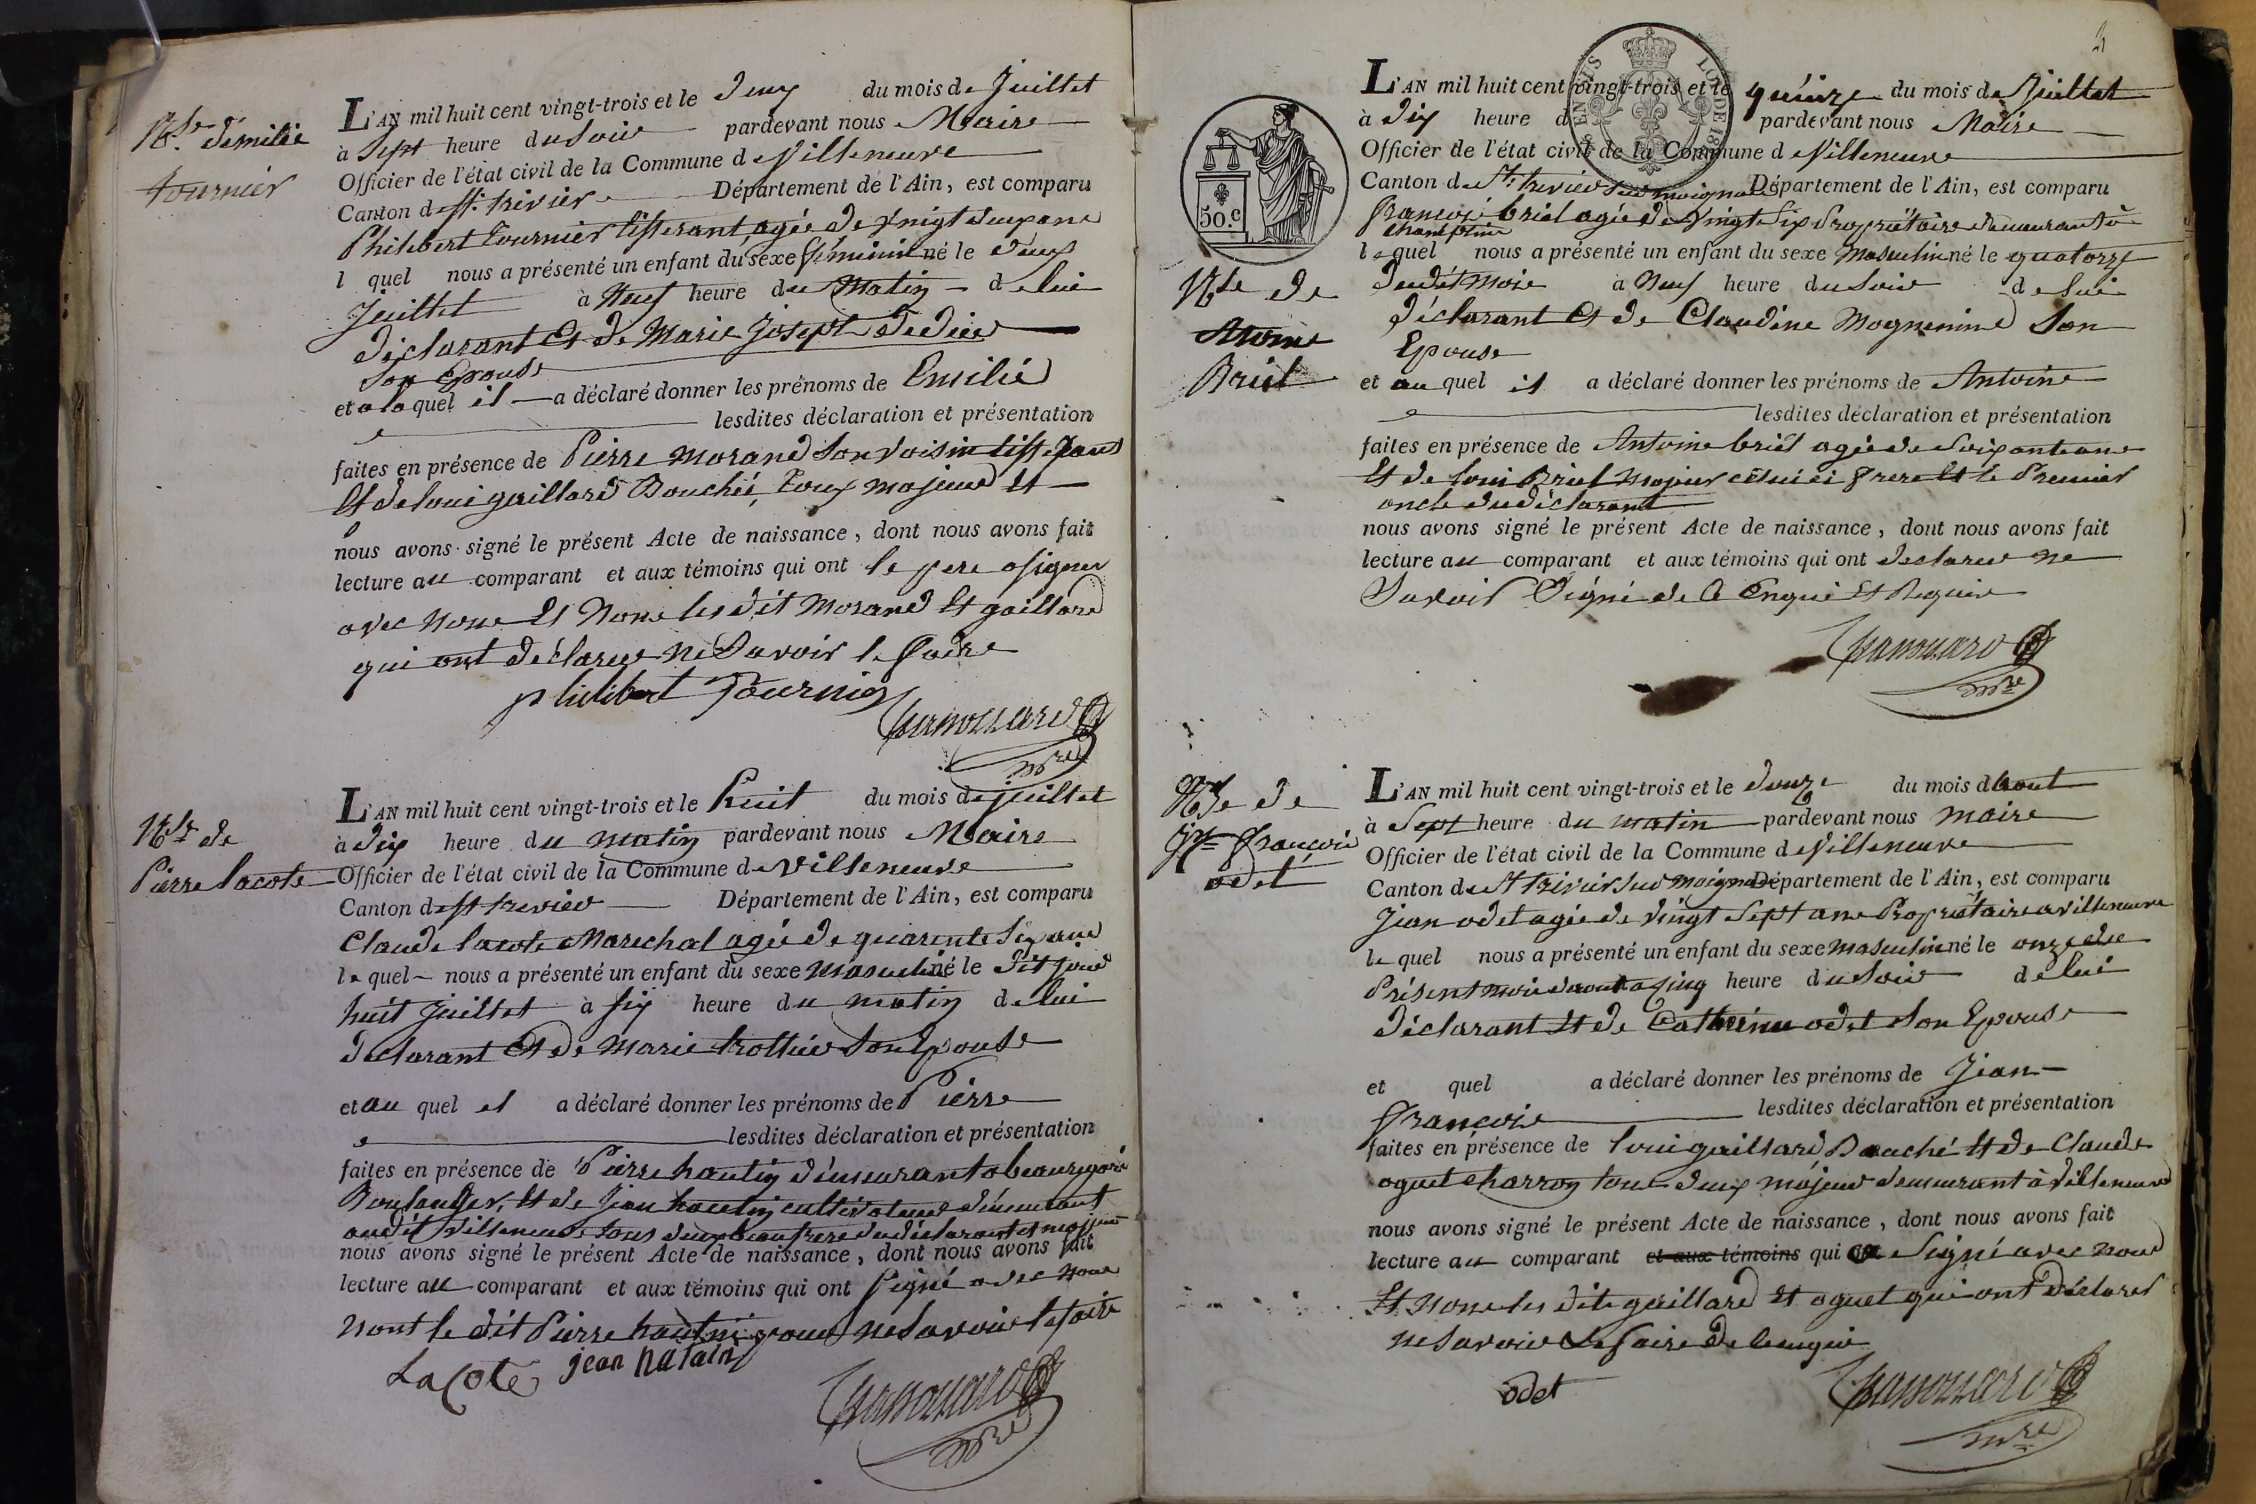 Nce d'émilie
tournier
L'AN mil huit cent vingt-trois et le deux du mois de Juillet
à Sept heure du Soir pardevant nous Maire
Officier de l'état civil de la Commune de Villeneuve
Canton de St. trivier Département de l'Ain, est comparu
Philibert tournier tisserant, agée de vingt deux ans
l quel nous a présenté un enfant du sexe féminin né le deux
Juillet à Neuf heure du Matin de lui
déclarant Et de Marie Joseph
Son Epouse
et a la quel il a déclaré donner les prénoms de Emilie
lesdites déclaration et présentation
faites en présence de Pierre morand Son voisin tisserans
Et de loui gaillard Bouché, toux majeurs Et
nous avons signé le présent Acte de naissance, dont nous avons fait
lecture au comparant et aux témoins qui ont le pere a signer
avec nous Et Nom les dit morand Et gaillard
qui ont déclarer ne Savoir le faire
philibert Tournier
mre
Nce de
Pierre lacote
L'AN mil huit cent vingt-trois et le huit du mois de juillet
à dix heure du matin pardevant nous Maire
Officier de l'état civil de la Commune de Villeneuve
Canton de St trevier Département de l'Ain, est comparu
Claude lacote Marechal agée de quarente Six ans
le quel nous a présenté un enfant du sexe Masculin né le dit jour
huit Juillet à Six heure du matin de lui
déclarant Et de Marie trottier Son Epouse
et au quel il a déclaré donner les prénoms de Pierre
lesdites déclaration et présentation
faites en présence de Pierre hautin démeurant a
Boulanger, Et de Jean hautin cultivateur démeurant
audit Villeneuve tous deux beaufrere du déclarant et majeur
nous avons signé le présent Acte de naissance, dont nous avons fait
lecture au comparant et aux témoins qui ont Signé avec nous
nont le dit Pierre hautin pour ne Savoir le faire
Lacote jean hatain
mre
L'AN mil huit cent vingt-trois et le quinze du mois de Juillet
à dix heure d pardevant nous Maire
Officier de l'état civil de la Commune de Villeneuve
Canton de St. trivier Sur moignans Département de l'Ain, est comparu
françois briel agée de vingt Six Propriétaire demeurant à
50.c
le quel nous a présenté un enfant du sexe masculin né le quatorze
dudit mois à Neuf heure du Soir de lui
Nce de
Antoine
Briel
déclarant Et de Claudine Mognenine Son
Epouse
et au quel il a déclaré donner les prénoms de Antoine
lesdites déclaration et présentation
faites en présence de Antoine briel agée de Soixante ans
Et de loui Briel Majeur celui ci frere Et le Premier
oncle du déclarant
nous avons signé le présent Acte de naissance, dont nous avons fait
lecture au comparant et aux témoins qui ont déclarer ne
Savoir Signé de Ce Enquis Et Requis
mre
Nce de
Jn françois
odet
L'AN mil huit cent vingt-trois et le douze du mois daout
à Sept heure du matin pardevant nous maire
Officier de l'état civil de la Commune de Villeneuve
Canton de St trivier Sur moignans Département de l'Ain, est comparu
Jean odet agée de vingt Sept ans Propriétaire a villeneuve
le quel nous a présenté un enfant du sexe masculin né le onze du
Présent mois daout a cinq heure du Soir de lui
déclarant Et de Catherine odet Son Epouse
et quel a déclaré donner les prénoms de Jean
françois lesdites déclaration et présentation
faites en présence de loui gaillard Bouché Et de Claude
oguet charron tous deux majeur demeurant à villeneuve
nous avons signé le présent Acte de naissance, dont nous avons fait
lecture au comparant et aux témoins qui a Signé avec nous
Et Nom les dits gaillard Et oguet qui ont déclarer
ne Savoir Le faire de
odet
mre